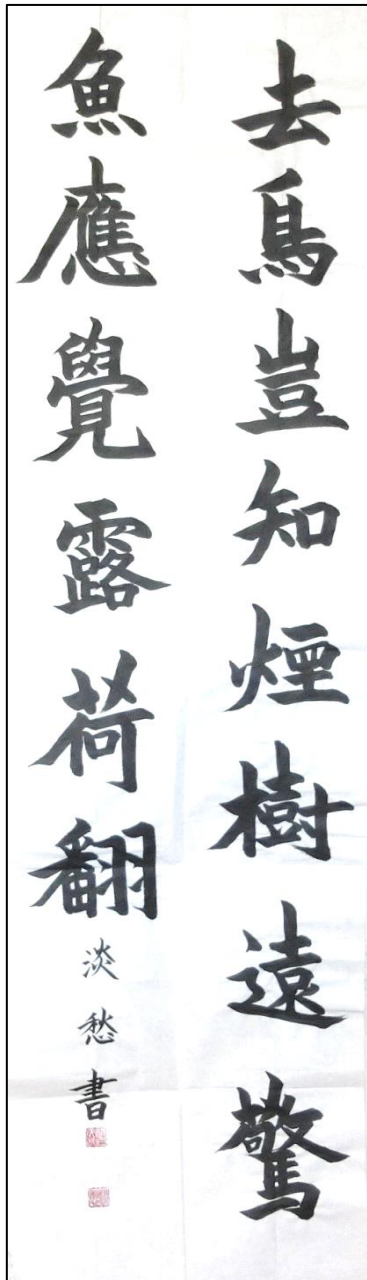 去鳥豈知煙樹遠驚
魚應覺露荷翻
淡愁書